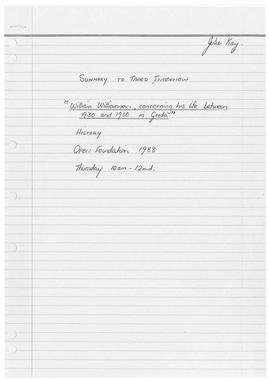 Julie Kay.
SUMMARY TO TAPED INTERVIEW
"William Williamson, concerning his life between
1930 and 1950 in Greta"
HISTORY
OPEN FOUNDATION 1988
THURSDAY 10am - 12md.